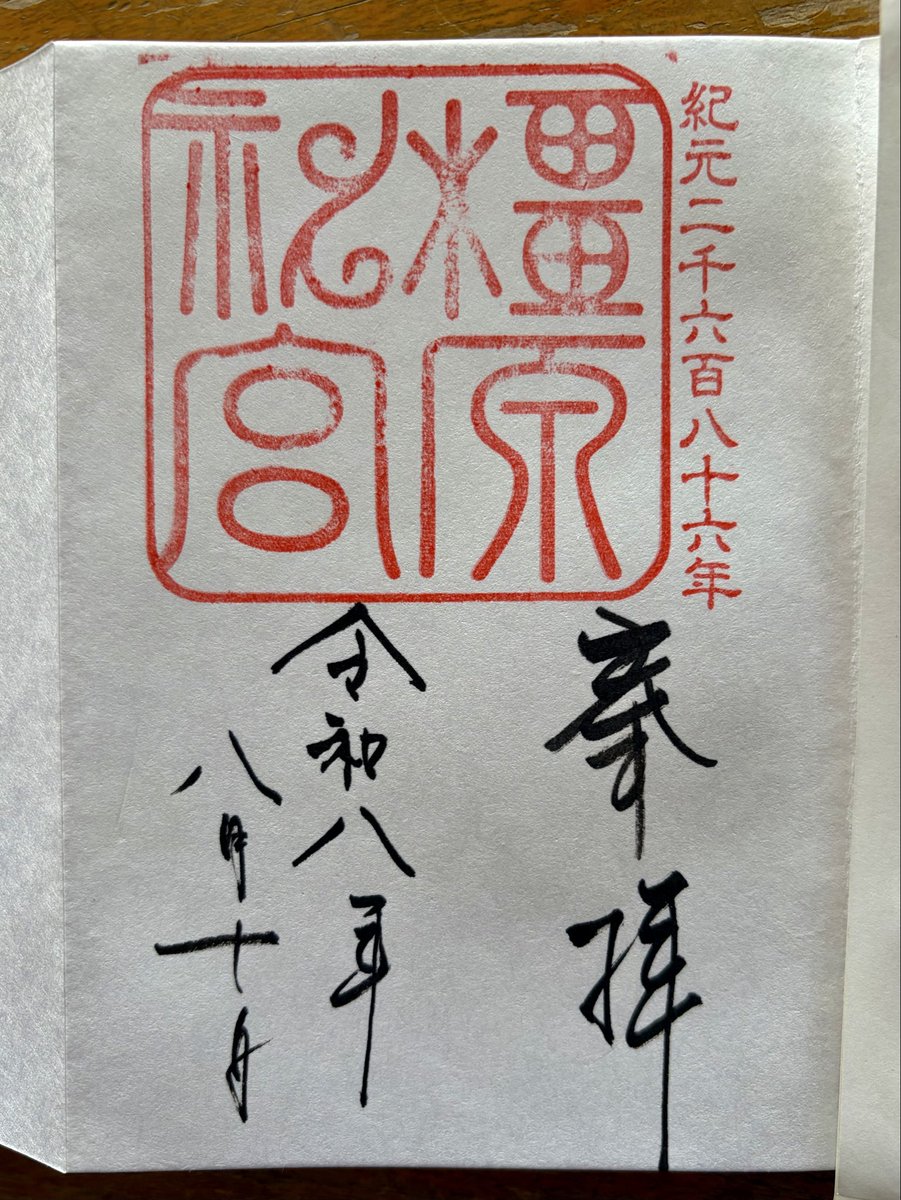 紀元二千六百八十六年
橿原
神宮
奉拝
令和八年
八月十日